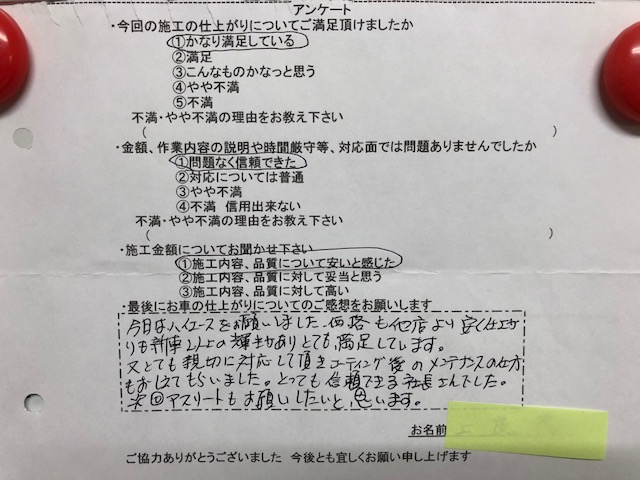 アンケート
・今回の施工の仕上がりについてご満足頂けましたか
①かなり満足している
②満足
③こんなものかなっと思う
④やや不満
⑤不満
不満・やや不満の理由をお教え下さい
（　　　）
・金額、作業内容の説明や時間厳守等、対応面では問題ありませんでしたか
①問題なく信頼できた
②対応については普通
③やや不満
④不満 信用出来ない
不満・やや不満の理由をお教え下さい
（　　　）
・施工金額についてお聞かせ下さい
①施工内容、品質について安いと感じた
②施工内容、品質に対して妥当と思う
③施工内容、品質に対して高い
・最後にお車の仕上がりについてのご感想をお願いします
今回はハイエースをお願いしました。価格も他店より安く仕上が
りも新車以上の輝きありとても満足しています。
又とても親切に対応して頂きコーティング後のメンテナンスの仕方
もおしえてもらいました。とっても信頼できる社長さんでした。
次回アスリートもお願いしたいと思います。
お名前
ご協力ありがとうございました 今後とも宜しくお願い申し上げます